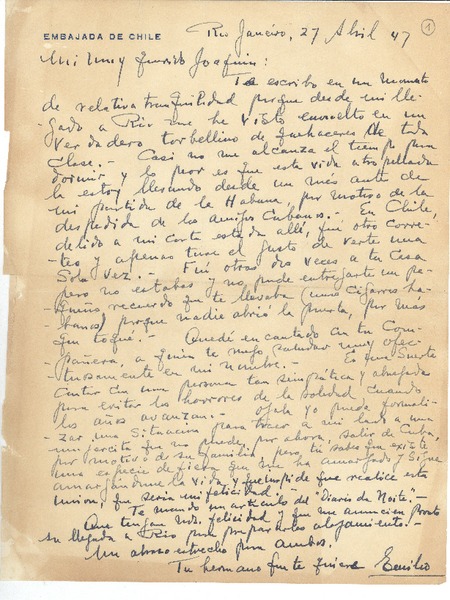 EMBAJADA DE CHILE
Rio Janeiro, 27 Abril 47
1
Mi muy querido Joaquín:
Te escribo en un momento
de relativa tranquilidad porque desde mi lle-
gado a Rio me he visto envuelto en un
verdadero torbellino de quehaceres de toda
clase.- Casi no me alcanza el tiempo para
dormir y lo peor es que esta vida atropellada
la estoy llevando desde un mes antes de
mi partida de la Habana, por motivo de la
despedida de los amigos cubanos.- En Chile,
debido a mi corta estada allí, fué otro corre-
teo y apenas tuve el gusto de verte una
sola vez.- Fuí otras dos veces a tu casa
pero no estabas y no pude entregarte un pe-
queño recuerdo que te llevaba (unos cigarros ha-
banos) porque nadie abrió la puerta, por más
que toqué.- Quedé encantado con tu com-
pañera, a quien te ruego saludar muy afec-
tuosamente en mi nombre.- Es gran suerte
contar con una persona tan simpática y abnegada
para evitar los horrores de la soledad cuando
los años avanzan.- Ojalá yo pueda formali-
zar una situación para traer a mi lado a una
mujercita que no puede, por ahora, salir de Cuba,
por motivo de su familia, pero tú sabes que existe
una especie de fiera que me ha amargado y sigue
amargándome la vida, y que impide que realice esta
unión, que sería mi felicidad.-
Te mando un artículo del "Diario da Noite".-
Que tengan mds. felicidad y que me anuncien pronto
su llegada a Rio para prepararles alojamiento.-
Un abrazo estrecho para ambos.
Tu hermano que te quiere Emilio